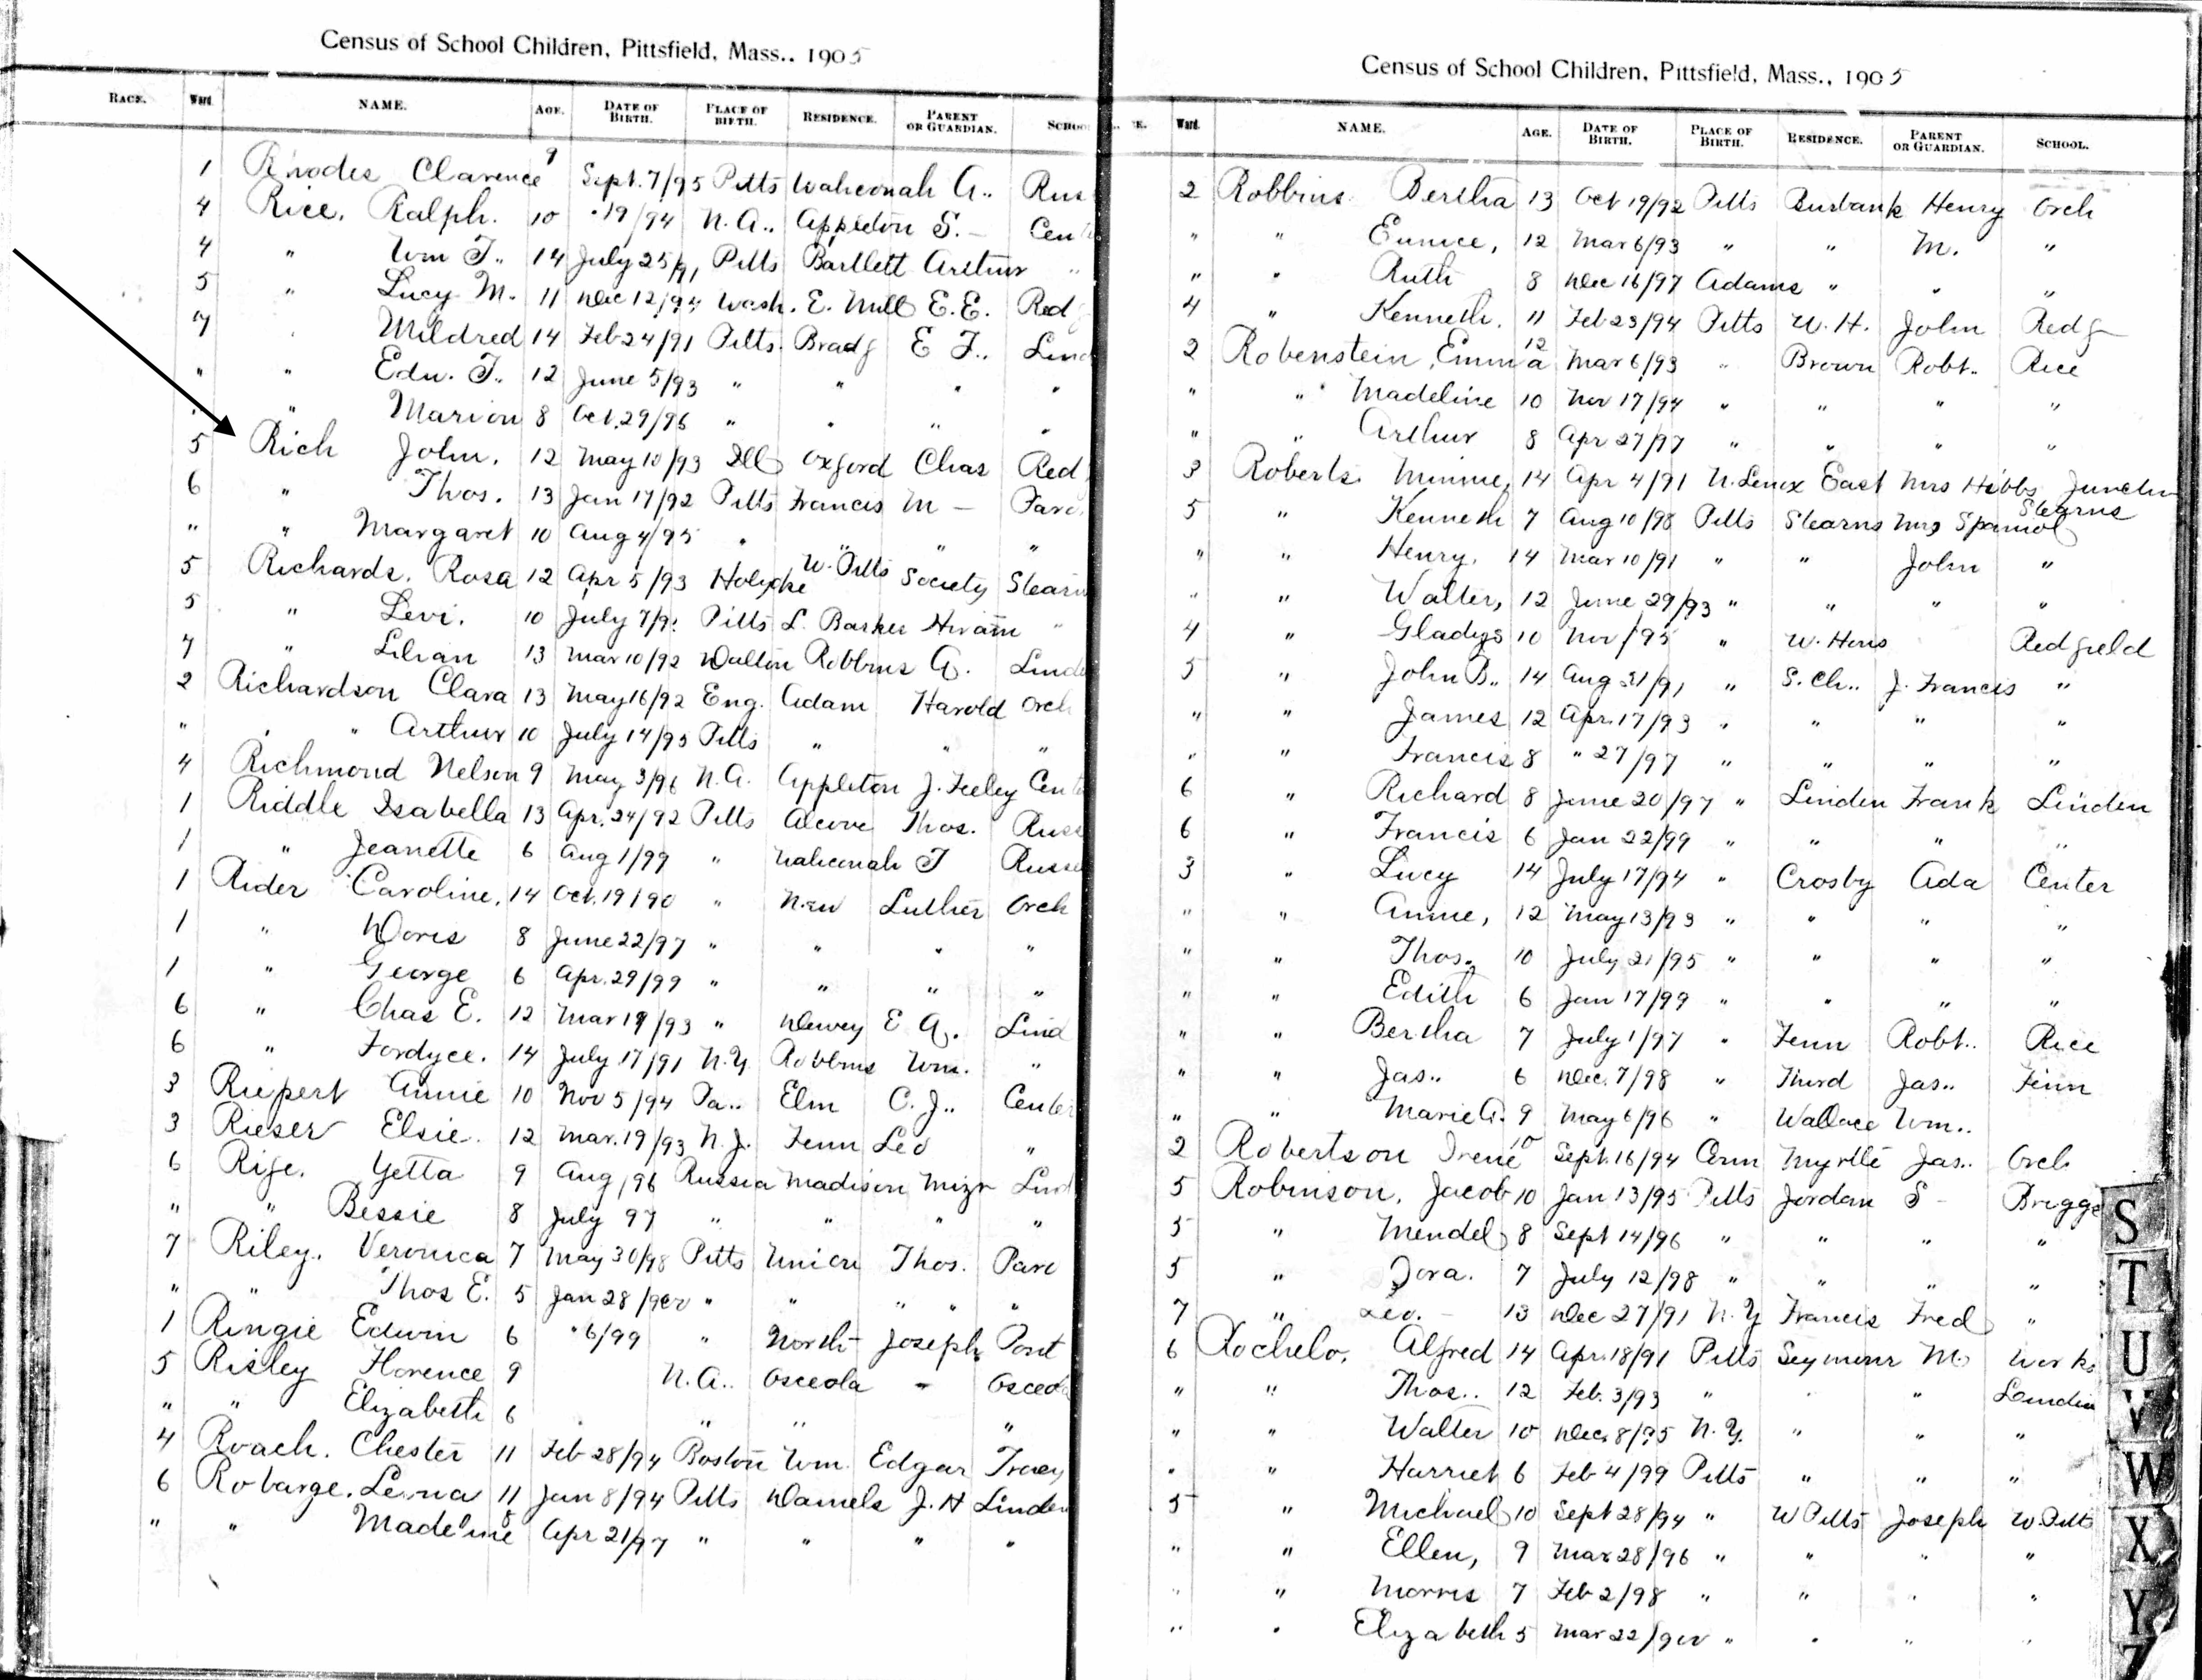 Census of School Children, Pittsfield, Mass.. 1905
RACE. Ward. NAME. AGE. DATE OF BIRTH. PLACE OF BIRTH. RESIDENCE. PARENT OR GUARDIAN. SCHOO
1 Rhodes Clarence 9 Sept. 7/95 Pitts Wahconah A.. Rus
4 Rice, Ralph. 10 " 19/94 N.A.. Appleton S. — Cent
4 " Wm J.. 14 July 25/91 Pitts Bartlett Arthur "
5 " Lucy M. 11 Dec 12/94 Wash. E. Mill E.E. Red
7 " Mildred 14 Feb 24/91 Pitts. Bradf E F.. Lind
" " Edw. J.. 12 June 5/93 " " " "
" " Marion 8 Oct. 29/96 " " " "
5 Rich John. 12 May 10/93 Ill Oxford Chas Red
6 " Thos. 13 Jan 17/92 Pitts Francis M —
" " Margaret 10 Aug 4/95 " " " "
5 Richards. Rosa 12 Apr 5/93 Holyoke W. Pitts Society Stearn
5 " Levi. 10 July 7/9 Pitts L. Barker Hiram "
7 " Lilian 13 Mar 10/92 Dalton Robbins A. Linde
2 Richardson Clara 13 May 16/92 Eng. Adam Harold Orch
" " Arthur 10 July 14/95 Pitts " " "
4 Richmond Nelson 9 May 3/96 N.A. Appleton J. Feeley Cent
1 Riddle Isabella 13 Apr. 24/92 Pitts Alcove Thos. Russ
1 " Jeanette 6 Aug 1/99 " Wahconah T Russe
1 Rider Caroline. 14 Oct. 19/90 " New Luther Orch
1 " Doris 8 June 22/97 " " " "
1 " George 6 Apr. 29/99 " " " "
6 " Chas E. 12 Mar 19/93 " Dewey E A. Lind
6 " Fordyce. 14 July 17/91 N.Y. Robbins Wm. "
3 Riepert Annie 10 Nov 5/94 Pa.. Elm C. J.. Center
3 Rieser Elsie. 12 Mar. 19/93 N.J. Fenn Leo "
6 Rife. Yetta 9 Aug /96 Russia Madison Lind
" " Bessie 8 July 97 " " " "
7 Riley. Veronica 7 May 30/98 Pitts Union Thos. Paro
" " Thos E. 5 Jan 28 / " " " "
1 Ringie Edwin 6 " 6/99 " North Joseph Pont
5 Risley Florence 9 N.A.. Osceola - Osceola
" " Elizabeth 6 " " "
4 Roach. Chester 11 Feb 28/94 Boston Wm. Edgar Tracy
6 Robarge. Lena 11 Jan 8/94 Pitts Daniels J. H Linden
" " Madeline 8 Apr 21/97 " " " "
Census of School Children, Pittsfield, Mass., 1905
E. Ward. NAME. AGE. DATE OF BIRTH. PLACE OF BIRTH. RESIDENCE. PARENT OR GUARDIAN. SCHOOL.
2 Robbins Bertha 13 Oct 19/92 Pitts Burbank Henry Orch
" " Eunice, 12 Mar 6/93 " " M. "
" " Ruth 8 Dec 16/97 Adams " " "
4 " Kenneth. 11 Feb 23/94 Pitts W. H. John Redf
2 Robenstein, Emma 12 Mar 6/93 " Brown Robt. Rice
" " Madeline 10 Nov 17/94 " " " "
" " Arthur 8 Apr 27/97 " " " "
3 Roberts. Minnie, 14 Apr 4/91 N. Lenox East Mrs Hibbs Junction
5 " Kenneth 7 Aug 10/98 Pitts Stearns Mrs Spaniol Stearns
" " Henry. 14 Mar 10/91 " " John "
" " Walter, 12 June 29/93 " " " "
4 " Gladys 10 Nov /95 " W. Hous Redfield
5 " John B.. 14 Aug 31/91 " S. Ch.. J. Francis "
" " James 12 Apr. 17/93 " " " "
" " Francis 8 " 27/97 " " " "
6 " Richard 8 June 20/97 " Linden Frank Linden
6 " Francis 6 Jan 22/99 " " " "
3 " Lucy 14 July 17/94 " Crosby Ada Center
" " Annie, 12 May 13/93 " " " "
" " Thos. 10 July 21/95 " " " "
" " Edith 6 Jan 17/99 " " " "
" " Bertha 7 July 1/97 " Fenn Robt.. Rice
" " Jas.. 6 Dec. 7/98 " Third Jas.. Fenn
" " Marie A. 9 May 6/96 " Wallace Wm..
2 Robertson Irene 10 Sept. 16/94 Conn Myrtle Jas.. Orch
5 Robinson, Jacob 10 Jan 13/95 Pitts Jordan S - Briggs
5 " Mendel 8 Sept 14/96 " " " "
5 " Zora. 7 July 12/98 " " " "
7 " Leo. 13 Dec 27/91 N.Y Francis Fred "
6 Rochelo. Alfred 14 Apr. 18/91 Pitts Seymour M. Works
" " Thos.. 12 Feb. 3/93 " " " Linden
" " Walter 10 Dec. 8/95 N.Y. " " "
" " Harriet 6 Feb 4/99 Pitts " " "
5 " Michael 10 Sept 28/94 " W Pitts Joseph W. Pitts
" " Ellen, 9 Mar 28/96 " " " "
" " Morris 7 Feb 2/98 " " " "
" " Elizabeth 5 Mar 22/ " " " "
S
T
U
V
W
X
Y
Z